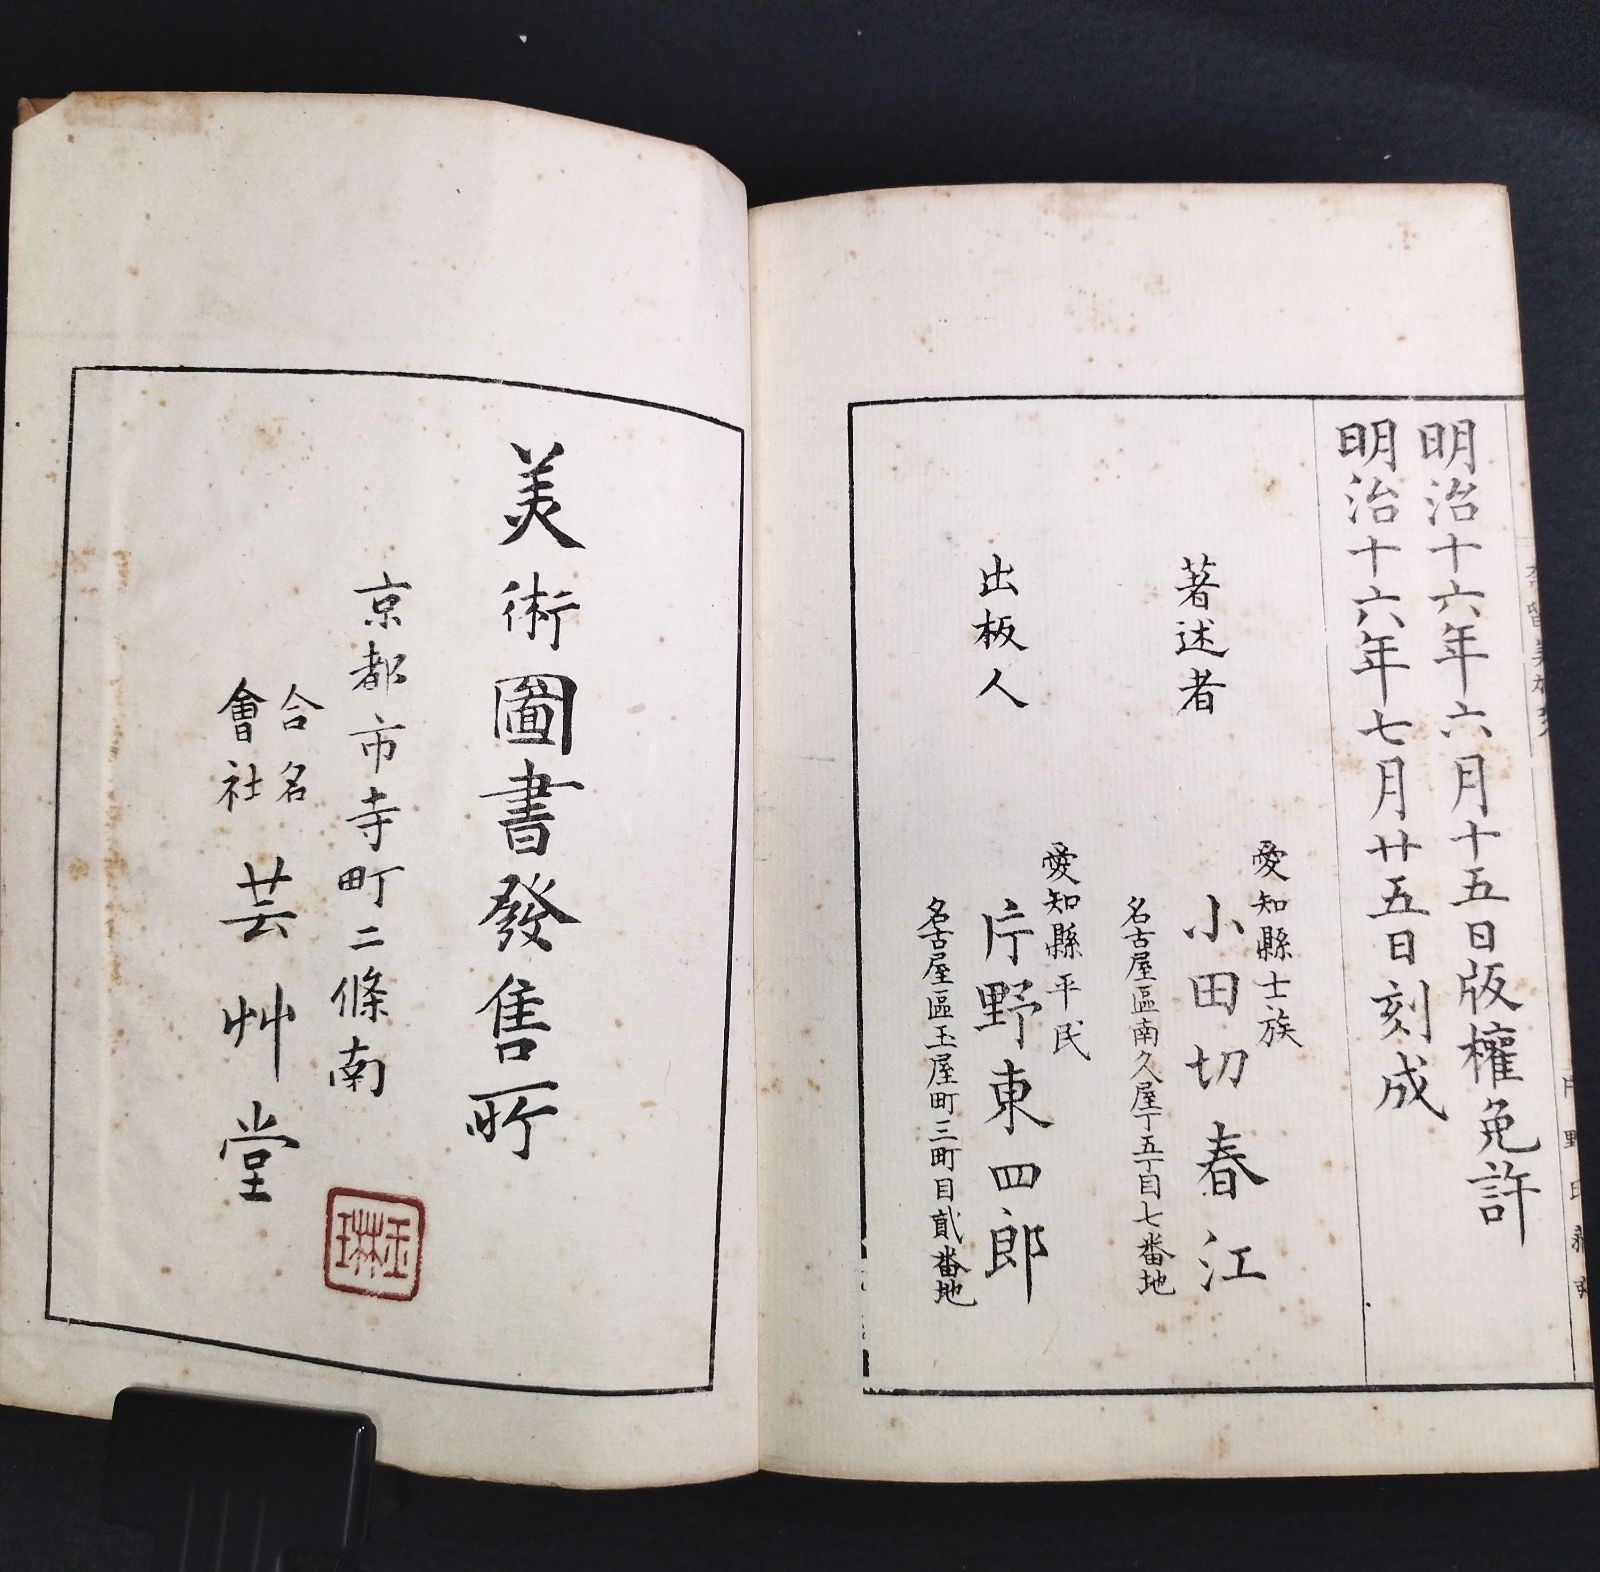 明治十六年六月十五日版權免許
明治十六年七月廿五日刻成
著述者
愛知縣士族
小田切春江
名古屋區南久屋丁五丁目七番地
出板人
愛知縣平民
片野東四郎
名古屋區玉屋町三町目貳番地
美術圖書發售所
京都市寺町二條南
合名
會社
芸艸堂